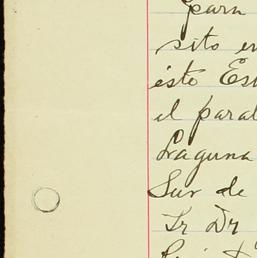 para
sito en
este Est
el paral
Laguna
Sur de
Sr Dr